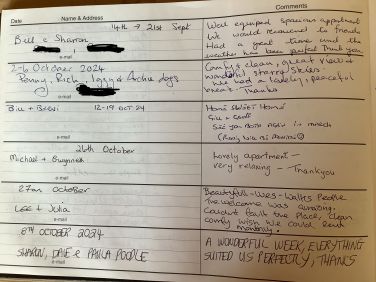 Date
Name & Address
Comments
14th → 21st Sept
Bill & Sharon
e-mail
Well equiped spacious apartment
We would recommend to friends
Had a great time and the
weather has been perfect Thank you
2-6 October 2024
Penny, Rich, Iggy & Archie dogs
e-mail
Comfy & clean, great view &
wonderful starry skies
We had a lovely, peaceful
break. Thanks
Bill + 12-19 Oct 24
e-mail
Home Sweet Home
See you both now in march
26th October
Michael + Gwynneth
e-mail
Lovely apartment —
very relaxing — Thankyou
27th October
Lee + Julia
e-mail
Beautyfull - Views - Walks People
The welcome was amazing.
Couldn't fault the place, clean
comfy wish we could rent
monthly.
6TH OCTOBER 2024
SHARON, DALE & PAULA POOPLE
e-mail
A WONDERFUL WEEK, EVERYTHING
SUITED US PERFECTLY, THANKS